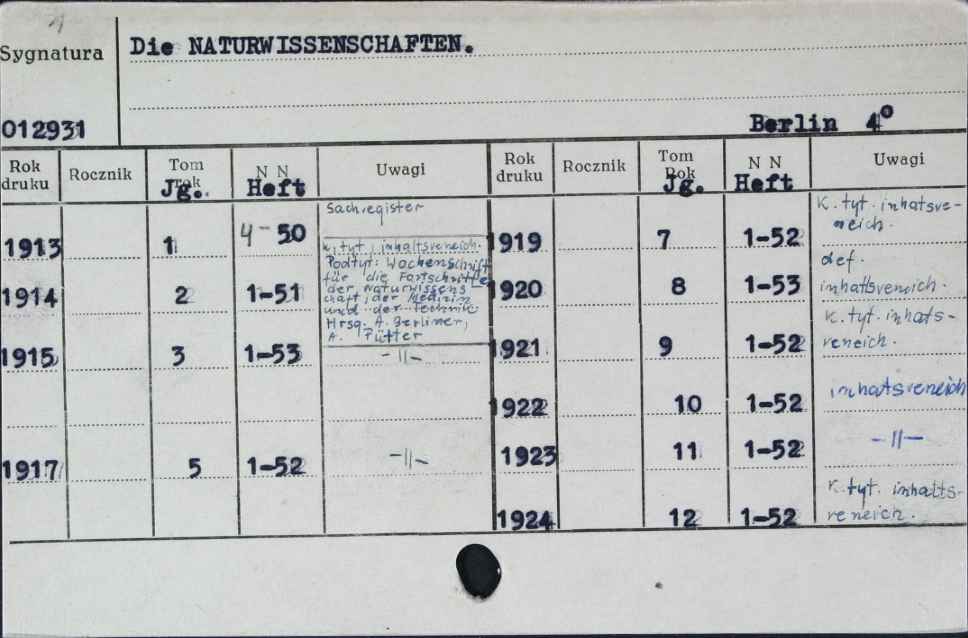 Sygnatura
Die NATURWISSENSCHAFTEN.
012931
Berlin 4°
Rok druku Rocznik Tom Jg. N N Heft Uwagi
1913 1 4-50 Sachregister
K. tyt, inhaltsverzeich.
Podtyt: Wochenschrift
für die Fortschritte
der Naturwissens
chaft, der Medizin
und der Technik
Hrsg. A. Berliner,
A. Pütter
1914 2 1-51
1915 3 1-53 -||-
1917 5 1-52 -||-
Rok druku Rocznik Tom Rok Jg. N N Heft Uwagi
1919 7 1-52 K. tyt. inhatsve-
reich.
1920 8 1-53 def.
inhaltsverzeich.
1921 9 1-52 K. tyt. inhats-
vereich.
1922 10 1-52 inhatsvereich
1923 11 1-52 -||-
1924 12 1-52 K. tyt. inhalts-
vereich.